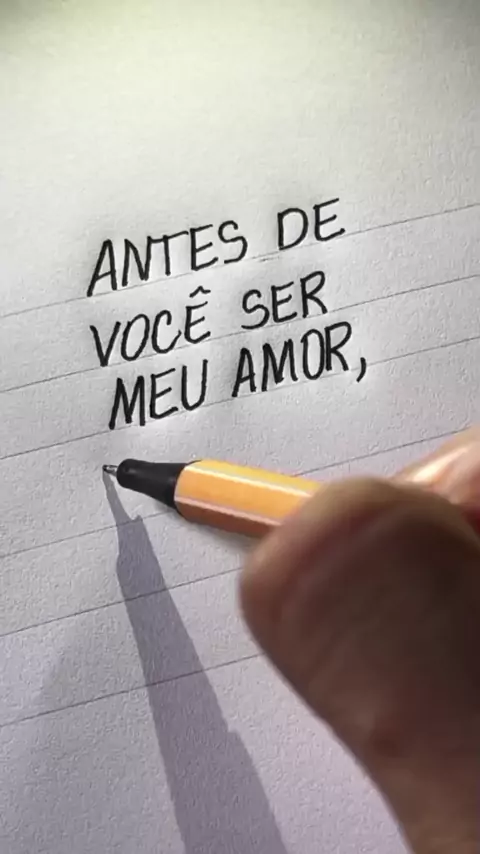 ANTES DE
VOCÊ SER
MEU AMOR,